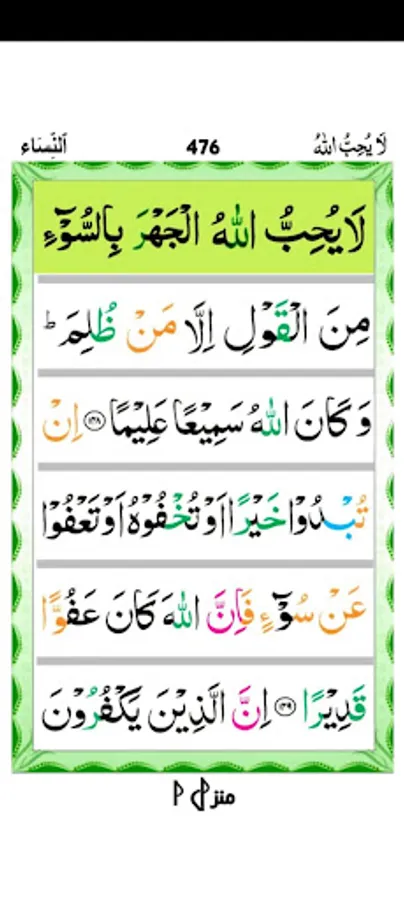 اَلنِّسَاء 476 لَا يُحِبُّ اللهُ
لَا يُحِبُّ اللهُ الْجَهْرَ بِالسُّوْٓءِ
مِنَ الْقَوْلِ اِلَّا مَنْ ظُلِمَ ؕ
وَ كَانَ اللهُ سَمِيْعًا عَلِيْمًا ﴿۱۴۸﴾ اِنْ
تُبْدُوْا خَيْرًا اَوْ تُخْفُوْهُ اَوْ تَعْفُوْا
عَنْ سُوْٓءٍ فَاِنَّ اللهَ كَانَ عَفُوًّا
قَدِيْرًا ﴿۱۴۹﴾ اِنَّ الَّذِيْنَ يَكْفُرُوْنَ
منزل ۱